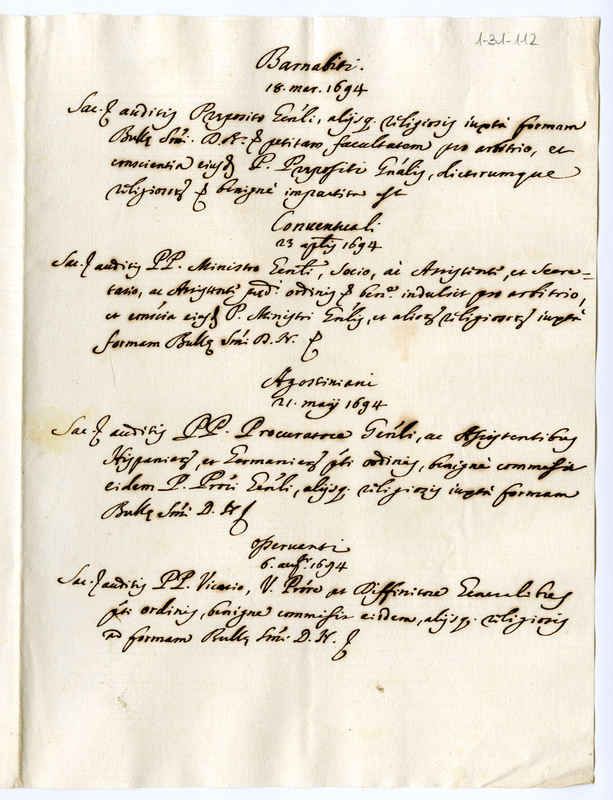 1-31-112
Barnabiti.
18. mar. 1694
Sac. auditis Preposito Gñli, alijsq. religiosis iuxta formam
Bullę Smi. D. N. petitam facultatem pro arbitrio, et
conscientia eiusd P. Prepositi Gnalis, dictorumque
religiosorũ benigne impartita est
Conventuali
23 aplis 1694
Sac. auditis PP. Ministro Genli, Socio, ac Assistenti, et Secre=
tario, ac Assistenti ordinis ben. indulsit pro arbitrio,
et conscia eiusd P. Ministri Gnlis, et aliorũ religiosorũ iuxta
formam Bullę Smi D. N.
Agostiniani
21. maij 1694
Sac. auditis PP. Procuratore Genli, ac Assistentibus
Hispaniarũ, et Germaniarũ pti ordinis, benigne commisit
eidem P. Prori Genli, alijsq. religiosis iuxta formam
Bullę Smi D. N
Osservanti
6. augti. 1694
Sac. auditis PP. Vicario, V. Prore et Diffinitore Generalibus
pti ordinis, benigne commisit eisdem, alijsq. religiosis
ad formam Bullę Smi D. N.